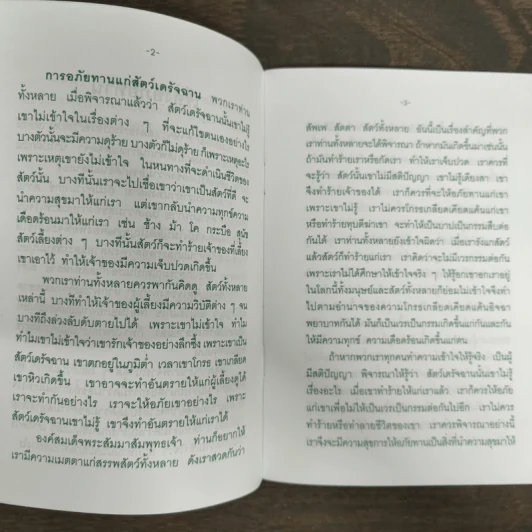 -2-
การอภัยทานแก่สัตว์เดรัจฉาน พวกเราท่าน
ทั้งหลาย เมื่อพิจารณาแล้วว่า สัตว์เดรัจฉานนั้นเขาไม่รู้
เขาไม่เข้าใจในเรื่องต่าง ๆ ที่จะแก้ไขตนเองอย่างไร
บางตัวนั้นจะมีความดุร้าย บางตัวก็ไม่ดุร้าย ก็เพราะเหตุอะไร
เพราะเหตุเขายังไม่เข้าใจ ในหนทางที่จะดำเนินชีวิตของ
สัตว์นั้น บางทีนั้นเราจะไปเชื่อเขาว่าเขาเป็นสัตว์ที่ดี จะ
นำความสุขมาให้แก่เรา แต่เขากลับนำความทุกข์ความ
เดือดร้อนมาให้แก่เรา เช่น ช้าง ม้า โค กระบือ สุนัข
สัตว์เลี้ยงต่าง ๆ บางทีนั้นสัตว์ก็จะทำร้ายเจ้าของที่เลี้ยง
เขาเอาไว้ ทำให้เจ้าของมีความเจ็บปวดเกิดขึ้น
พวกเราท่านทั้งหลายควรพากันคิดดู สัตว์ทั้งหลาย
เหล่านี้ บางทีทำให้เจ้าของผู้เลี้ยงมีความวิบัติต่าง ๆ จน
บางทีถึงล่วงลับดับตายไปได้ เพราะเขาไม่เข้าใจ ทำไม
ทำไมเขาไม่เข้าใจว่าเขารักเจ้าของอย่างลึกซึ้ง เพราะเขาเป็น
สัตว์เดรัจฉาน เขาตกอยู่ในภูมิต่ำ เวลาเขาโกรธ เขาเกลียด
เขาหิวเกิดขึ้น เขาอาจจะทำอันตรายให้แก่ผู้เลี้ยงดูได้
เราจะทำกันอย่างไร เราจะให้อภัยเขาอย่างไร เพราะ
สัตว์เดรัจฉานเขาไม่รู้ เขาจึงทำอันตรายให้แก่เราได้
องค์สมเด็จพระสัมมาสัมพุทธเจ้า ท่านก็อยากให้
เรามีความเมตตาแก่สรรพสัตว์ทั้งหลาย ดังเราสวดกันว่า
-3-
สัพเพ สัตตา สัตว์ทั้งหลาย อันนี้เป็นเรื่องสำคัญที่พวก
เราท่านทั้งหลายจะได้พิจารณา ถ้าหากมันเกิดขึ้นมาเช่นนั้น
ถ้ามันทำร้ายเราหรือกัดเรา ทำให้เราเจ็บปวด เราควรที่
จะรู้ว่า สัตว์นั้นเขาไม่มีสติปัญญา เขาไม่รู้เดียงสา เขา
จึงทำร้ายเจ้าของได้ เราก็ควรที่จะให้อภัยทานแก่เขา
เพราะเขาไม่รู้ เราไม่ควรโกรธเกลียดเคียดแค้นแก่เขา
หรือทำร้ายทุบตีฆ่าเขา จะทำให้เป็นบาปเป็นกรรมสืบต่อ
กันได้ เราท่านทั้งหลายยังเข้าใจผิดว่า เมื่อเรารังแกสัตว์
แล้วสัตว์ก็ทำร้ายแก่เรา เราคิดว่าจะไม่มีเวรกรรมต่อกัน
เพราะเราไม่ได้ศึกษาให้เข้าใจจริง ๆ ให้รู้ออกเขาอกเราอยู่
ในโลกนี้ทั้งมนุษย์และสัตว์ทั้งหลายก็ย่อมไม่เข้าใจ จึงทำ
ไปตามอำนาจของความโกรธเกลียดเคียดแค้นอิจฉา
พยาบาทกันได้ มันก็เป็นเวรเป็นกรรมเกิดขึ้นแก่กันและกัน
ให้มีความทุกข์ ความเดือดร้อนเกิดขึ้นแก่ตน
ถ้าหากพวกเราทุกคนทำความเข้าใจให้รู้จริง เป็นผู้
มีสติปัญญา พิจารณาให้รู้ว่า สัตว์เดรัจฉานนั้นเขาไม่รู้
เรื่องอะไร เมื่อเขาทำร้ายให้แก่เราแล้ว เราก็ควรให้อภัย
แก่เขาเพื่อไม่ให้เป็นเวรเป็นกรรมต่อกันไปอีก เราไม่ควร
ทำร้ายหรือทำลายชีวิตของเขา เราควรพิจารณาอย่างนี้
เราจึงจะมีความสุขการให้อภัยทานเป็นสิ่งที่นำความสุขมาให้